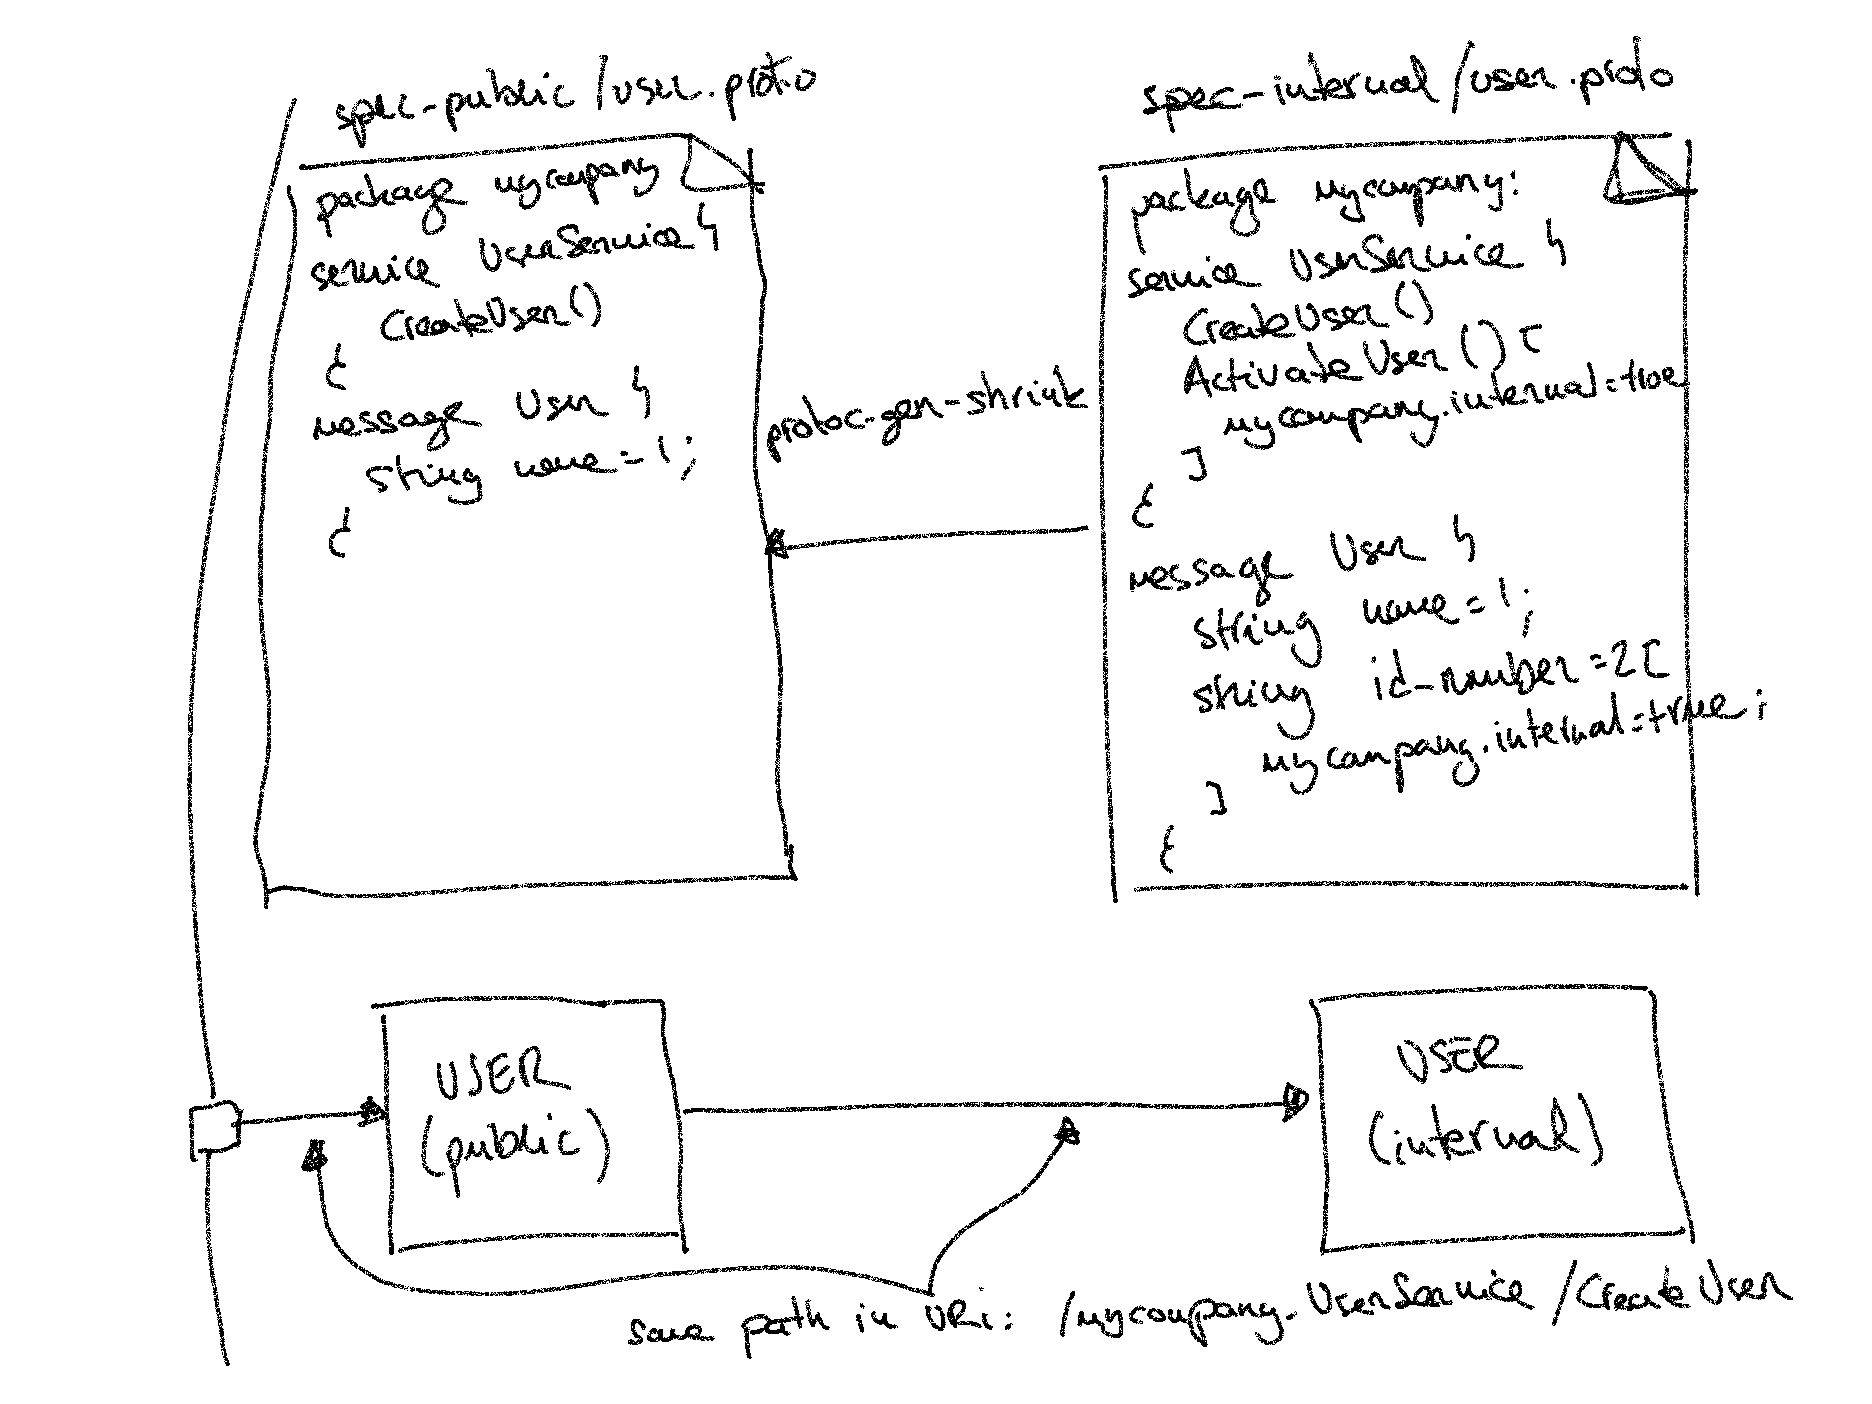 spec-public/user.proto
package mycompany
service UserService {
CreateUser()
}
message User {
string name = 1;
}
protoc-gen-shrink
spec-internal/user.proto
package mycompany;
service UserService {
CreateUser()
ActivateUser() [
mycompany.internal=true
]
}
message User {
string name = 1;
string id_number = 2 [
mycompany.internal=true;
]
}
USER
(public)
USER
(internal)
same path in URi: /mycoupany.UserService/CreateUser